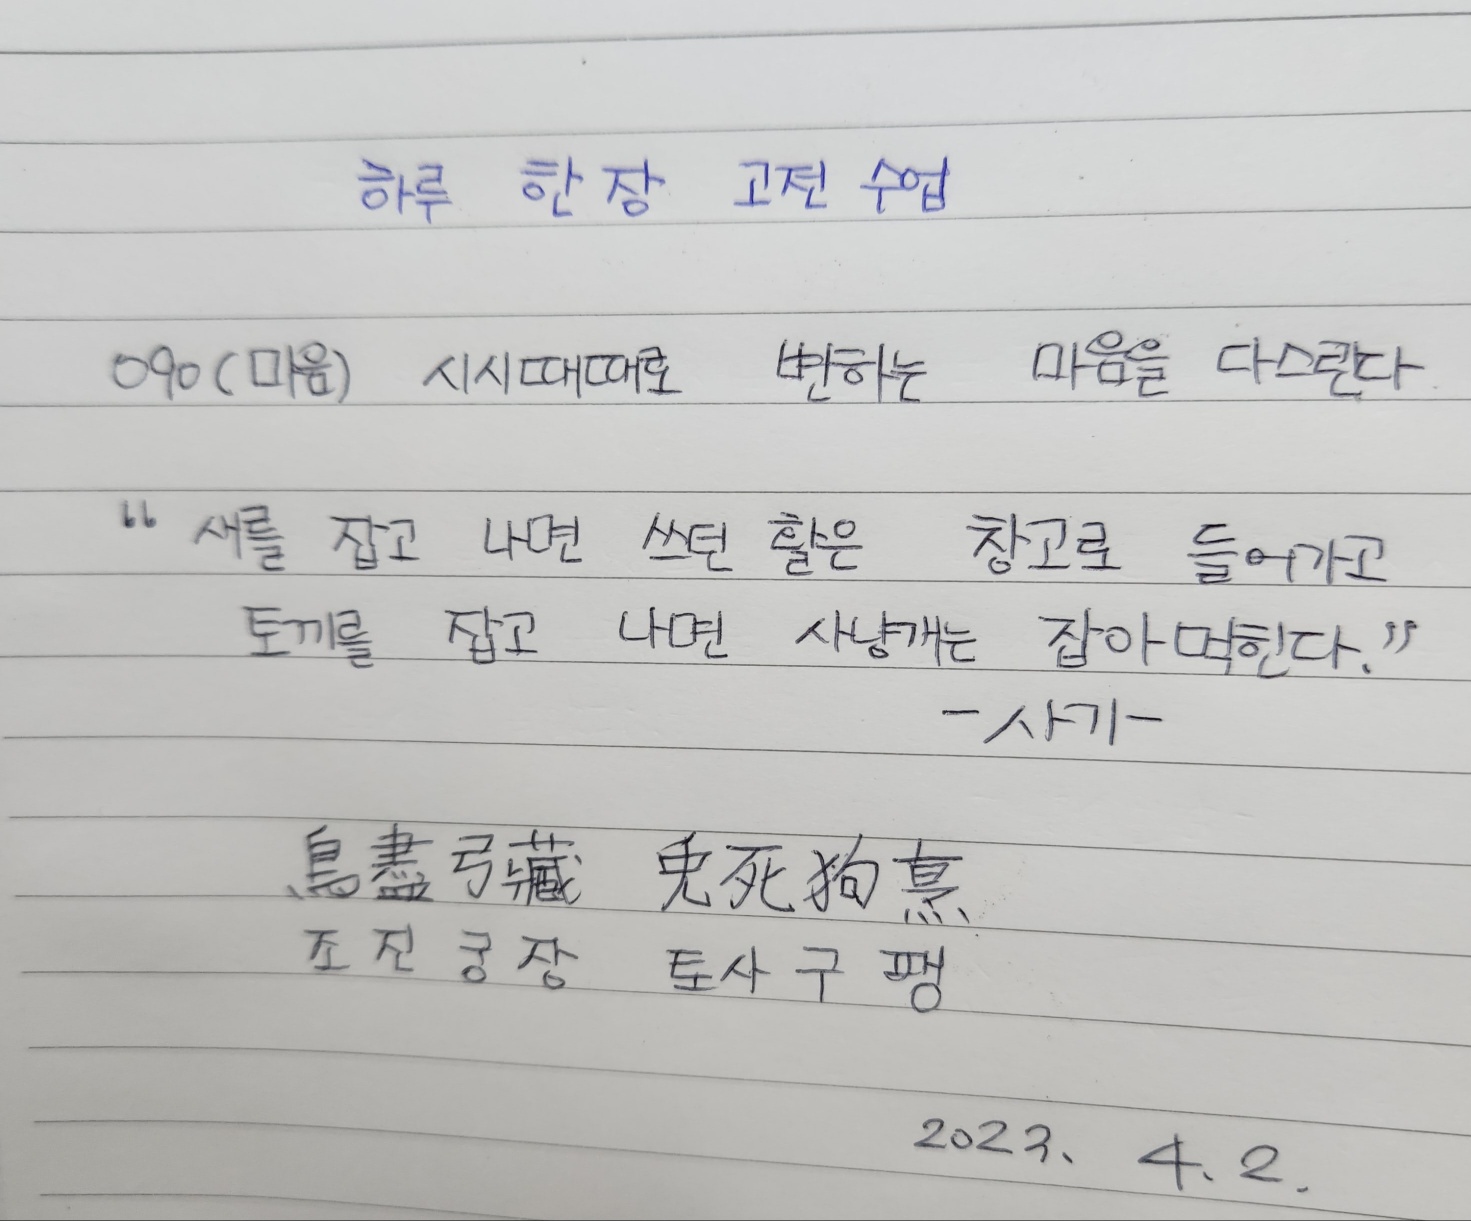 하루 한 장 고전 수업
090(마음) 시시때때로 변하는 마음을 다스린다
“새를 잡고 나면 쓰던 활은 창고로 들어가고
토끼를 잡고 나면 사냥개는 잡아먹힌다.”
-사기-
鳥盡弓藏 兎死狗烹
조진궁장 토사구팽
2023. 4. 2.